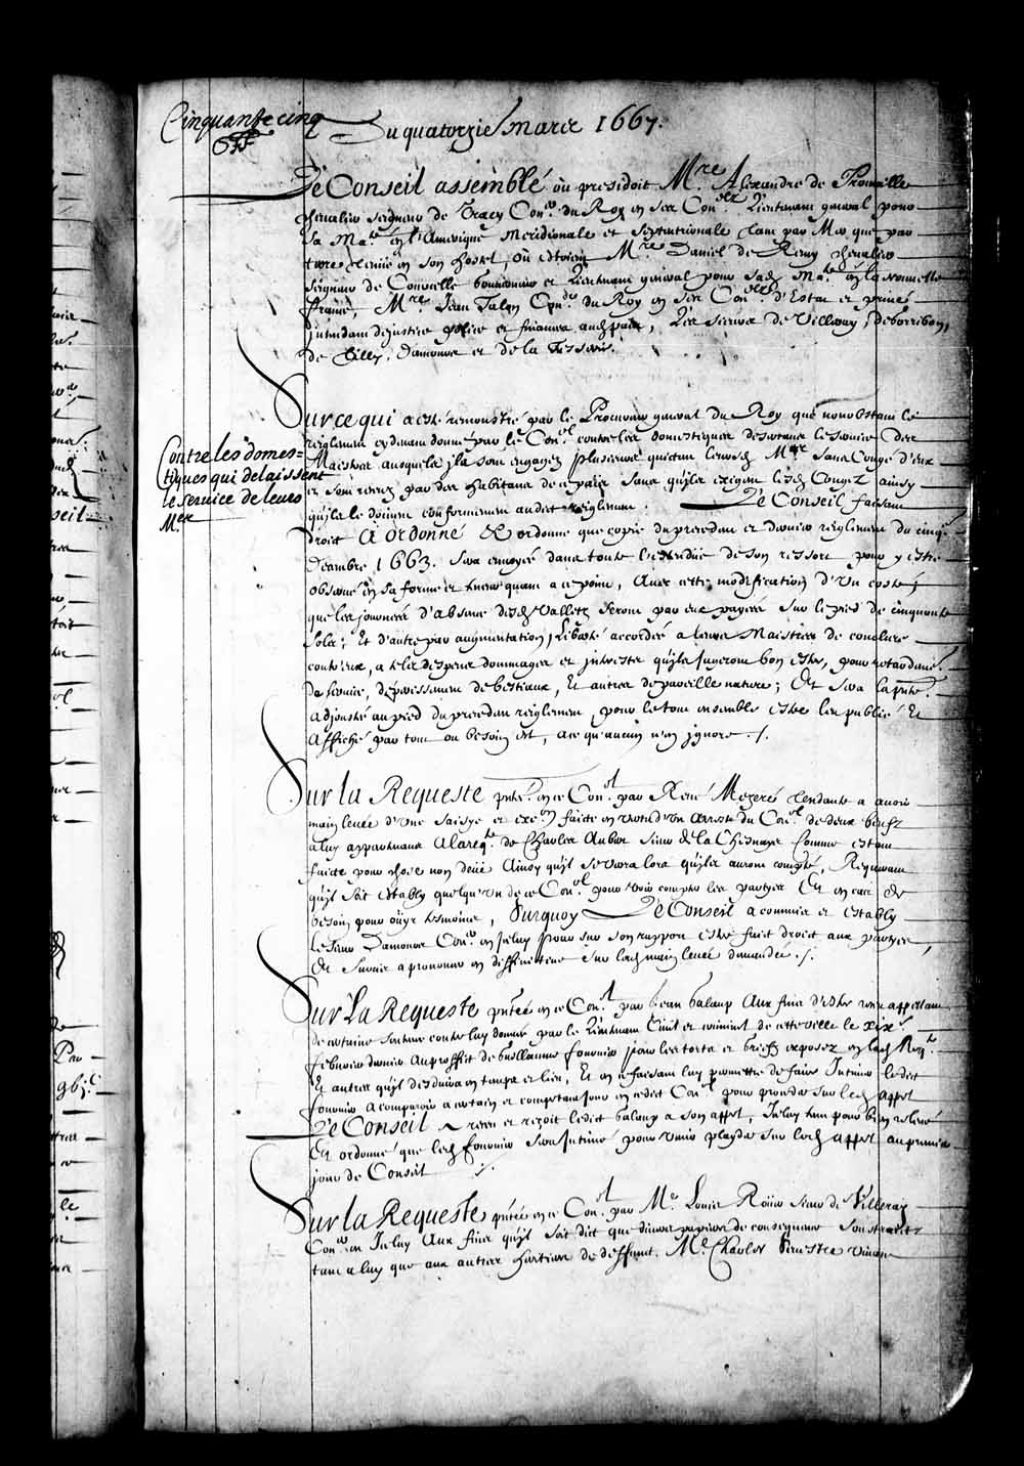 Cinquante cinq
Du quatorzie mars 1667.
Le Conseil assemblé ou presidoit Mre Alexandre de Prouville
chevalier seigneur de Tracy Coner du Roy en ses Conels Lieutenant general pour
sa Maté en l'Amerique Meridionale et Septentrionale tant par Mer que par
terre tenüe en son hostel, où estoient Mre Daniel de Remy chevalier
seigneur de Courcelle Gouverneur et Lieutenant general pour sade Maté en la Nouvelle
france, Mre Jean Talon Coner du Roy en ses Conels d'Estat et privé
Intendant de justice police et finances aud pais, Les sieurs de Villeray, de Gorribon,
de Tilly, Damours et de la Tesserie.
Contre les domes=
tiques qui delaissent
le service de leurs
Mes
Sur ce qui a esté remonstré par le Procureur general du Roy que nonobstant le
reiglement cydevant donné par le Conel contre les domestiques desertans le service des
Maistres ausquels ils sont engagez plusieurs quictent leursd Mes sans Congé d'eux
et sont receus par des habitans de ce pais sans qu'ils exigent lesd Congez ainsy
qu'ils le doivent conformement audit reiglement. Le Conseil faisant
droit a ordonné & ordonne que copie du precedent et dernier reiglement du cinqe
Decembre 1663. sera envoyée dans toute l'estendüe de son ressort pour y estre
observé en sa forme et teneur quant a ce point, Avec cette modification d'Un costé,
que les journées d'absence desd Valletz seront par eux payées sur le pied de cinquante
Solz; Et d'autre par augmentation, Liberté accordée a leurs Maistres de conclure
contr'eux, a telz despens dommages et interestz qu'ils jugeront bon estre, pour retardemt
de service, deperissement de bestiaux, Et autres de pareille nature; Et sera la pnte
adjoustée au pied du precedent reiglement pour le tout ensemble estre leu publié Et
Affiché par tout ou besoin est, a ce qu'aucun n'en ignore ./.
Sur la Requeste pntée en ce Conel par René Mezeré tendante a avoir
main levée d'une saisye et exeon faicte en vertu d'Un Arrest du Conel de deux bœufs
a luy appartenans a la reqte de Charles Aubert sieur de la Chesnaye Comme estant
faicte pour chose non deüe Ainsy qu'il se verra lors qu'ils auront compté, Requerant
qu'il soit estably quelqu'Un de ce Conel pour voir compter les partyes Et en cas de
besoin pour oüyr tesmoins, Surquoy Le Conseil a commis et estably
le sieur Damours Coner en Iceluy pour sur son rapport estre faict droict aux partyes,
Et surcis a prononcer en diffinitive sur lad main levée demandée ./.
Sur La Requeste pntée en ce Conel par Jean Galoup Aux fins d'estre receu appellant
de certaine sentence contre luy donnée par le Lieutenant Civil et criminel de cette ville le xixe
febvrier dernier Au proffit de Guillaume fournier pour les torts et griefz exposez en lad Reqte
Et autres qu'il desduira en temps et lieu, Et en ce faisant luy permettre de faire Intimer ledit
fournier a comparoir a certain et competant jour en cedit Conel pour proceder sur led appel
Le Conseil a receu et reçoit ledit Galoup a son appel, Iceluy tenu pour bien relevé
Et ordonné que led fournier sera Intimé pour venir plaider sur led appel au premier
jour de Conseil ./.
Sur la Requeste pntée en ce Conel par Me Louis Roüer sieur de Villeray
Coner en Iceluy Aux fins qu'il soit dict que divers papiers de consequence
tant a luy que aux autres heritiers de deffunt Me Charles Sevestre